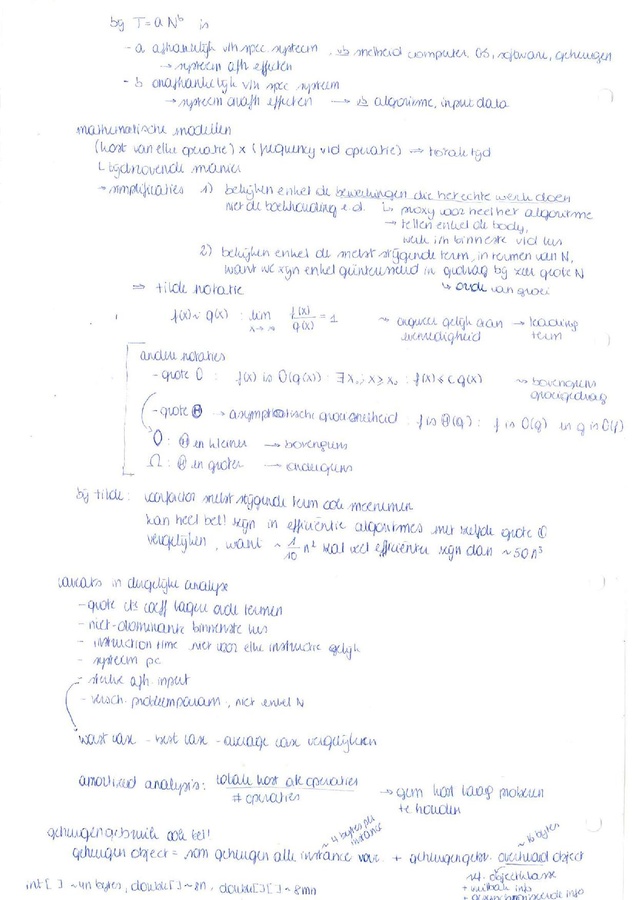 bij T = a N^b is
- a afhankelijk v/h spec. systeem, vb snelheid computer, OS, software, geheugen
→ systeem afh effecten
- b onafhankelijk v/h spec systeem
→ systeem onafh effecten → vb algoritme, input data
mathematische modellen
(kost van elke operatie) × (frequency v/d operatie) → totale tijd
↳ tijdrovende manier
→ simplificaties 1) bekijken enkel de bewerkingen die het echte werk doen
niet de boekhouding e.d. ↳ proxy voor heel het algoritme
→ tellen enkel de body,
werk i/h binnenste v/d lus
2) bekijken enkel de meest stijgende term, in termen van N,
want we zijn enkel geïnteresseerd in gedrag bij zeer grote N
↳ orde van groei
⇒ tilde notatie
f(x) ~ g(x) : lim x→∞ f(x)/g(x) = 1 → ongeveer gelijk aan → leading
evenredigheid term
andere notaties
- grote O : f(x) is O(g(x)) : ∃ x₀ : x ≥ x₀ : f(x) ≤ c g(x) → bovengrens
groeigedrag
- grote Θ → asymptotische groeisnelheid : f is Θ(g) : f is O(g) en g is O(f)
O : Θ en kleiner → bovengrens
Ω : Θ en groter → ondergrens
bij tilde : voorfactor meest stijgende term ook meenemen
kan heel bel! zijn in efficiëntie algoritmes met zelfde grote Θ
vergelijken, want ~ 1/10 n² zal veel efficiënter zijn dan ~ 50 n³
caveats in dergelijke analyse
- grote cts coëff lagere orde termen
- niet-dominante binnenste lus
- instruction time niet voor elke instructie gelijk
- systeem pc
- sterke afh. input
- versch. probleemparam, niet enkel N
worst case - best case - average case vergelijken
amortized analysis : totale kost alle operaties / # operaties → gem kost laag proberen
te houden
geheugengebruik ook bel! ~ 4 bytes per instance ~ 16 bytes
geheugen object = som geheugen alle instance var. + geheugengebr. overhead object
ref. objectklasse
int[ ] ~ 4n bytes, double[ ] ~ 8n, double[ ][ ] ~ 8mn + info
+ info